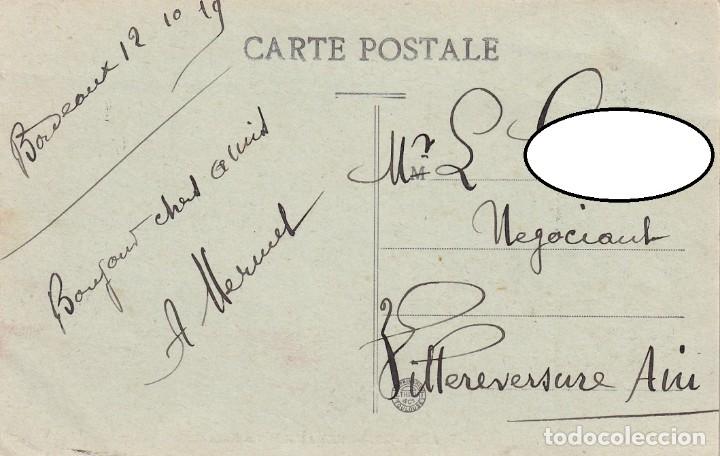 CARTE POSTALE
Bordeaux 12 10 19
Bonjour chers amis
M
Mr L
Negociant
Villereversure Ain
TOULOUSE
todocoleccion.net